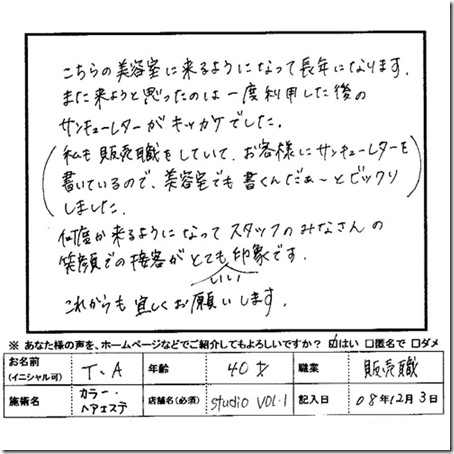 こちらの美容室に来るようになって長年になります。
また来ようと思ったのは一度利用した後の
サンキューレターがキッカケでした。
(私も販売職をしていて、お客様にサンキューレターを
書いているので、美容室でも書くんだぁ〜とビックリ
しました。)
何度か来るようになってスタッフのみなさんの
笑顔での接客がとてもいい印象です。
これからも宜しくお願いします。
※ あなた様の声を、ホームページなどでご紹介してもよろしいですか? ☑はい □匿名で □ダメ
お名前 (イニシャル可) T.A 年齢 40才 職業 販売職
施術名 カラー・ヘアエステ 店舗名(必須) studio VOL.1 記入日 08年12月3日